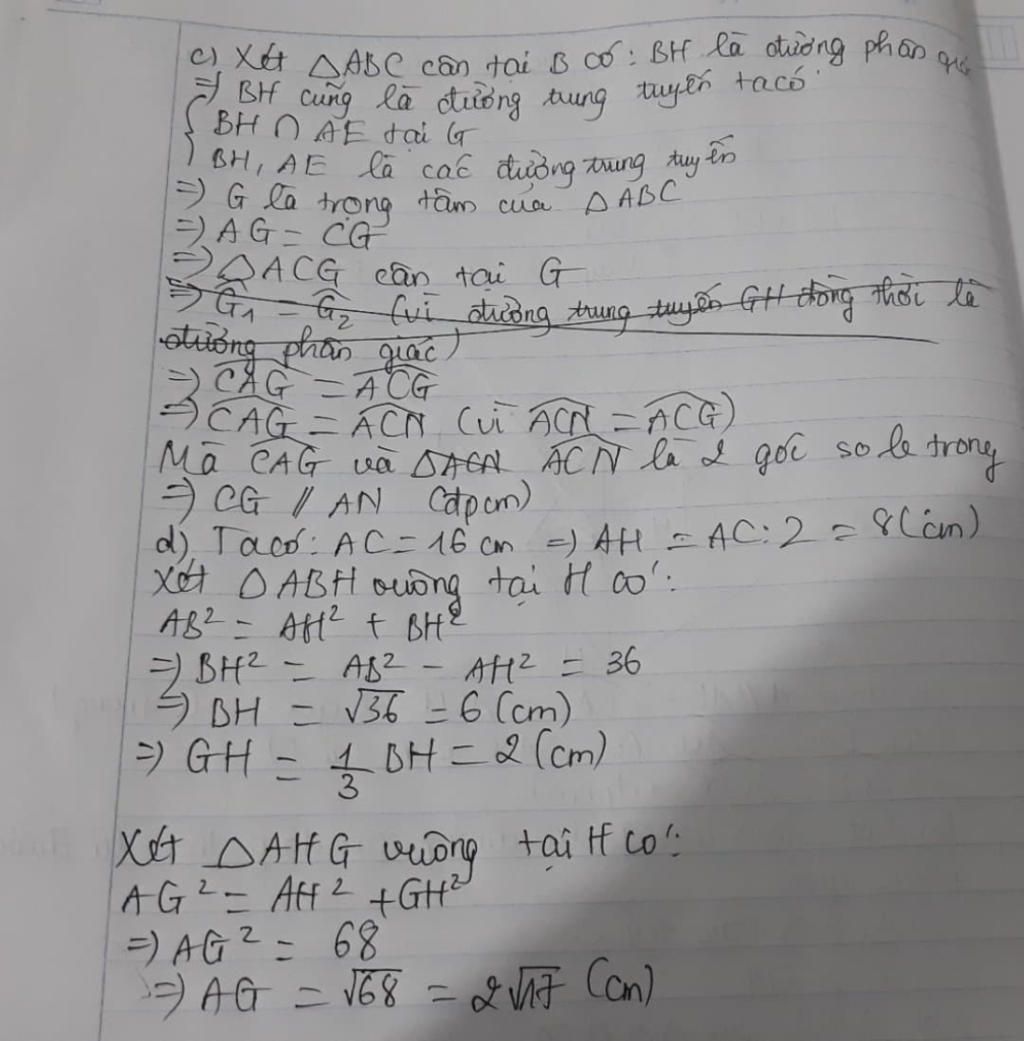 c) Xét △ABC cân tại B có: BH là đường phân giác
⇒ BH cũng là đường trung tuyến ta có
{ BH ∩ AE tại G
BH, AE là các đường trung tuyến
⇒ G là trọng tâm của △ABC
⇒ AG = CG
⇒ △ACG cân tại G
⇒ Ĝ₁ = Ĝ₂ (vì đường trung tuyến GH đồng thời là
đường phân giác)
⇒ \widehat{CAG} = \widehat{ACG}
⇒ \widehat{CAG} = \widehat{ACN} (vì \widehat{ACN} = \widehat{ACG})
Mà \widehat{CAG} và △ACN \widehat{ACN} là 2 góc so le trong
⇒ CG // AN (đpcm)
d) Ta có: AC = 16 cm ⇒ AH = AC : 2 = 8 (cm)
Xét △ABH vuông tại H có:
AB² = AH² + BH²
⇒ BH² = AB² - AH² = 36
⇒ BH = √36 = 6 (cm)
⇒ GH = 1/3 BH = 2 (cm)
Xét △AHG vuông tại H có:
AG² = AH² + GH²
⇒ AG² = 68
⇒ AG = √68 = 2√17 (cm)